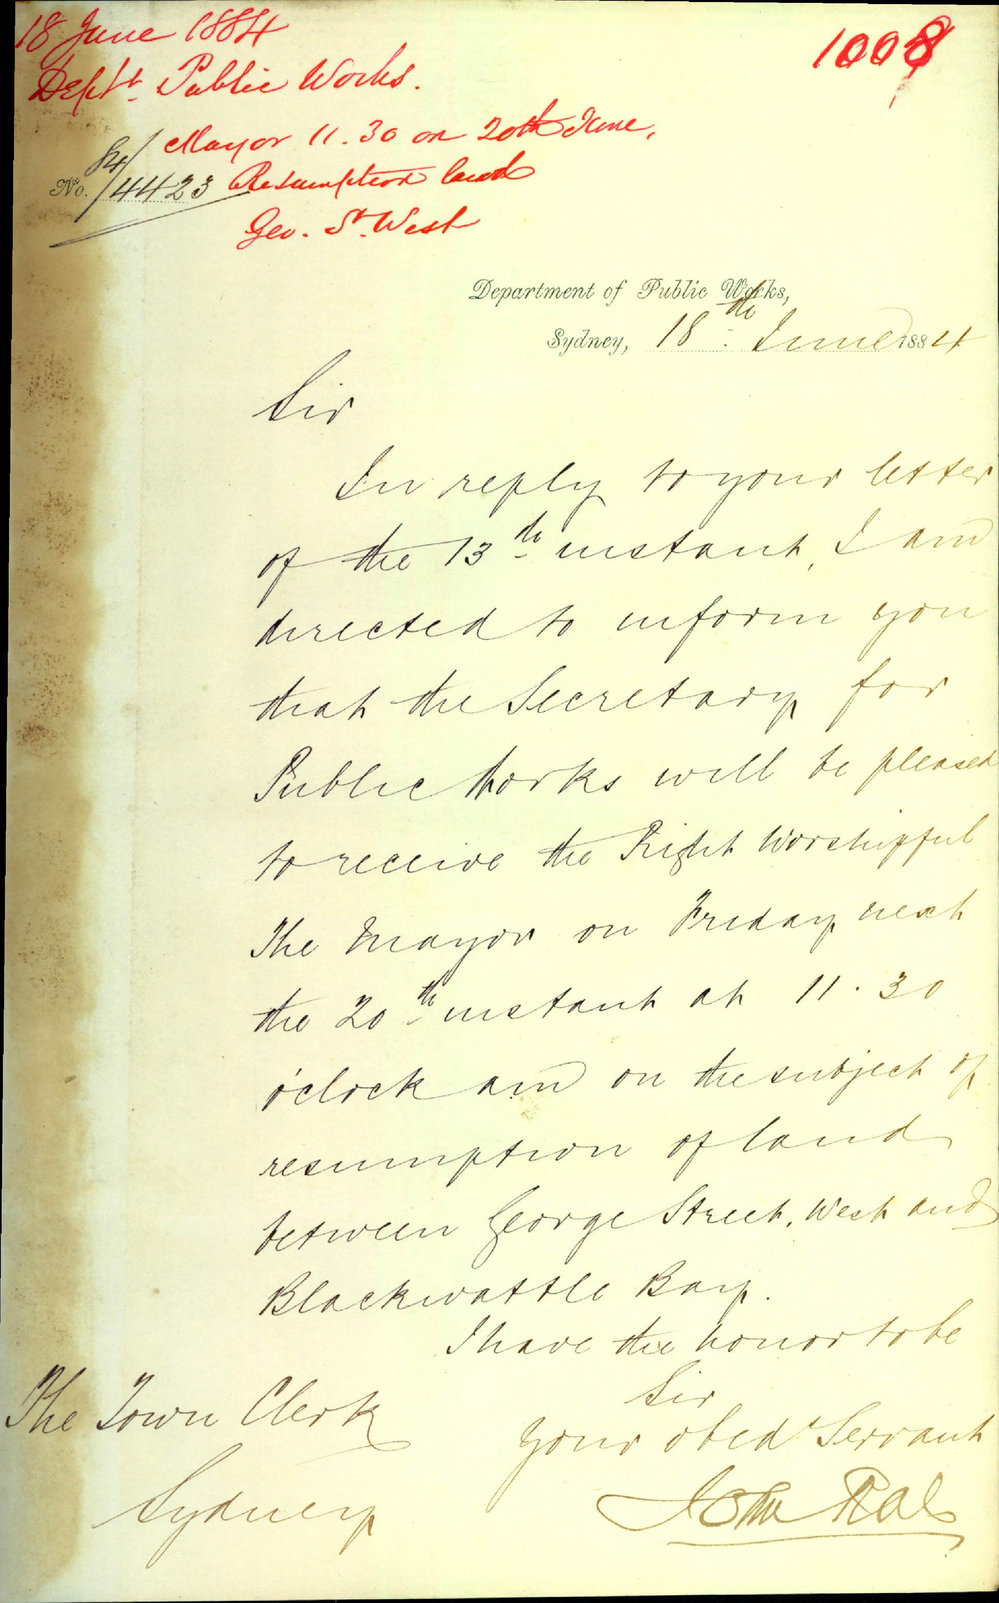 18 June 1884
1008
Deptt. Public Works.
Mayor 11.30 on 20th June,
No. 84/4423 Resumption land
Geo. St. West
Department of Public Works,
Sydney, 18th June 1884
Sir
In reply to your letter
of the 13th instant, I am
directed to inform you
that the Secretary for
Public Works will be pleased
to receive the Right Worshipful
The Mayor on Friday next
the 20th instant at 11.30
o'clock am on the subject of
resumption of land
between George Street, West and
Blackwattle Bay.
I have the honor to be
Sir
The Town Clerk
your obedt Servant
Sydney
John Rae